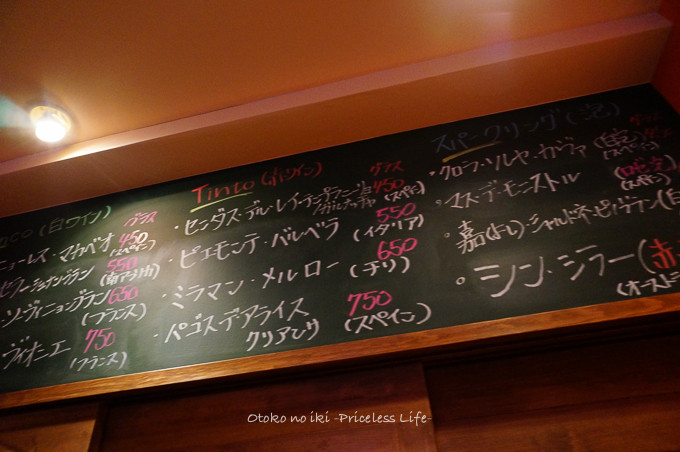 nco (白ワイン)
グラス
ニューレス・マカベオ 450
(スペイン)
550
ソーヴィニョンブラン 650
(フランス)
ヴィオニエ 750
(フランス)
Tinto (赤ワイン)
グラス
・センダス・デル・レイ・テンプラニーリョ 450
ガルナッチャ (スペイン)
・ピエモンテ・バルベラ 550
(イタリア)
・ミラマン・メルロー 650
(チリ)
・パゴスデアライス 750
クリアンサ (スペイン)
スパークリング(泡)
グラス
・クロラ・ソルヤ・カヴァ
(スペイン)
・マス・デ・モニストル
(スペイン)
・嘉(よし)・シャルドネ・ピィヴラン(白
・シン・シラー(赤
(オースト
Otoko no iki -Priceless Life-